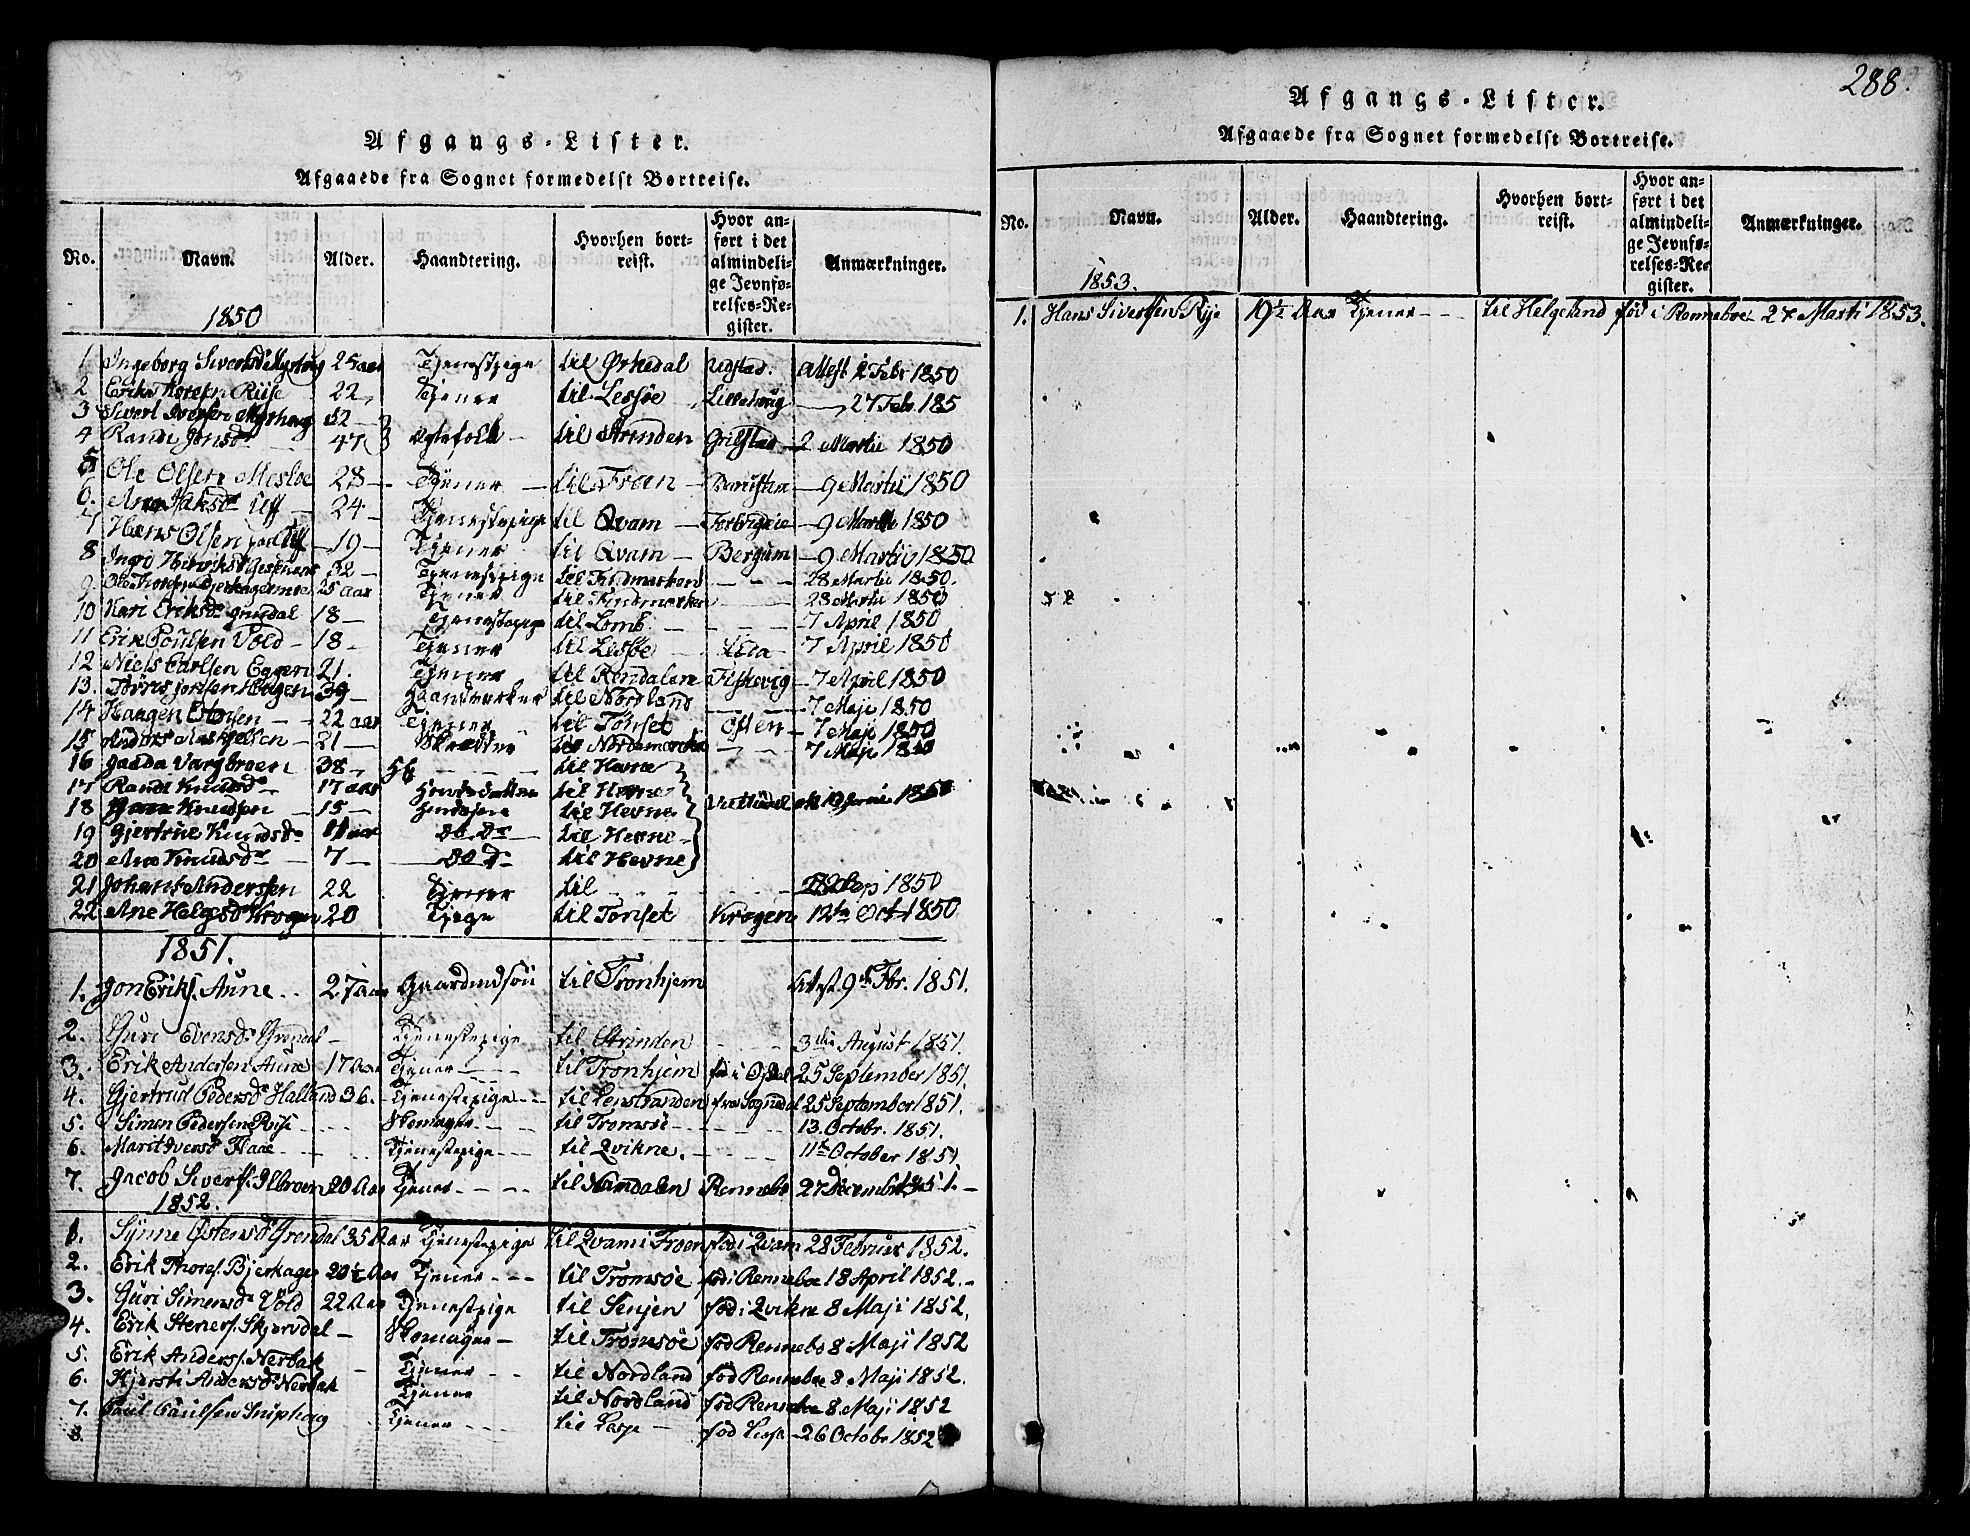 Afgangs-Lister.
Afgaaede fra Sognet formedelst Bortreise.
No. Navn. Alder. Haandtering. Hvorhen bortreist. Hvor anført i det almindelige Jevnførelses-Register. Anmærkninger.
1850
1 Ingeborg Sivertsd 25 aar Tjenestepige til Ørkedal Attest 2 Febr 1850
2 Erik Riise 22 Tjener til Lessøe Lillehaug 27 Febr. 185
3 Sivert Iversen Myrhaug 52
4 Randi Jonsdr 47 Egtefolk til Strinden Grilstad 2 Martii 1850
5 Ole Olsen Mesloe 28 Tjener til Froen 9 Martii 1850
6. Ane Iff 24 Tjenestepige til Qvam 9 Martii 1850
7 Hans Olsen Iff 19 Tjener til Qvam Bergum 9 Martii 1850
8 Ingr 32 Tjenestepige til Findmarken 28 Martii 1850.
9 Ole 25 aar Tjener til Findmarken 28 Martii 1850
10 Kari Eriksdr Grindal 18 Tjenestepige til Lomb 7 April 1850
11 Erik Poulsen Vold 18 Tjener til Lesøe 7 April 1850
12 Niels Carlsen Eggen 21 Tjener til Rendalen Fiskevig 7 April 1850
13. Tørris Jonsen Haugen 39 Haandverker til Nordland 7 Maji 1850
14 Haagen Estensen 22 aar Tjener til Tønset Osten 7 Maji 1850
15 Anders 21 til 7 Maji 1850
16 38 til Hevne
17 Randi Knudsdr 17 aar til Hevne 1850
18 Knudsen 15 til Hevne
19 Gjertrue Knudsdr 11 aar do Dr til Hevne
20 Ane Knudsdr 7 do Dr til Hevne
21 Johans Anderssen 22 Tjener til 1850
22 Ane Helgesdr Krogen 20 Pige til Tønset Krogen 12te Oct 1850
1851.
1. Jon Eriks. Aune 27 aar Gaardmdsøn til Tronhjem Attest 9de Fbr. 1851.
2. Guri Evensdr Grendal Tjenestepige til Strinden 3die August 1851.
3. Erik Andersen Aune 17 Aar Tjener til Tronhjem 25 September 1851.
4. Gjertrud Pedersdr Halland 36. Tjenestepige til Lenstranden fra Sognedal 25 September 1851.
5. Simen Pedersen Riise Skomager til Tromsøe 13. Octobr. 1851.
6. Marit Iversdr Haae Tjenestepige til Qvikne. 11te October 1851
7. Jacob Siverts. Ilbroen 20 Aar Tjener til Namdalen Rennebo 27 Decembr 1851.
1852.
1. Synne Østensdr Grendal 35 Aar Tjenestepige til Qvam i Froen fød i Qvam 28 Februar 1852.
2. Erik Thors. Bjerkager 20½ Aar Tjener til Tromsøe fød i Renneboe 18 April 1852.
3. Guri Simensdr Vold 22 Aar Tjenestepige til Senjen fød i Qvikne 8 Maji 1852.
4. Erik Steners. Skjervdal Skomager til Tromsøe fød Rennebo 8 Maji 1852
5. Erik Anders. Nerbak Tjener til Nordland fød Renneboe 8 Maji 1852.
6. Kjersti Andersdr Nerbak Tjener til Nordland fød Renneboe 8 Maji 1852
7. Paul Paulsen Sniphaug Tjener til Lesje fød Lesje 26 Octobr 1852
8.
288.
Afgangs-Lister.
Afgaaede fra Sognet formedelst Bortreise.
No. Navn. Alder. Haandtering. Hvorhen bortreist. Hvor anført i det almindelige Jevnførelses-Register. Anmærkninger.
1853.
1. Hans Sivertsen Rye 19½ Aar Tjener til Helgeland fød i Renneboe 27 Marti 1853.